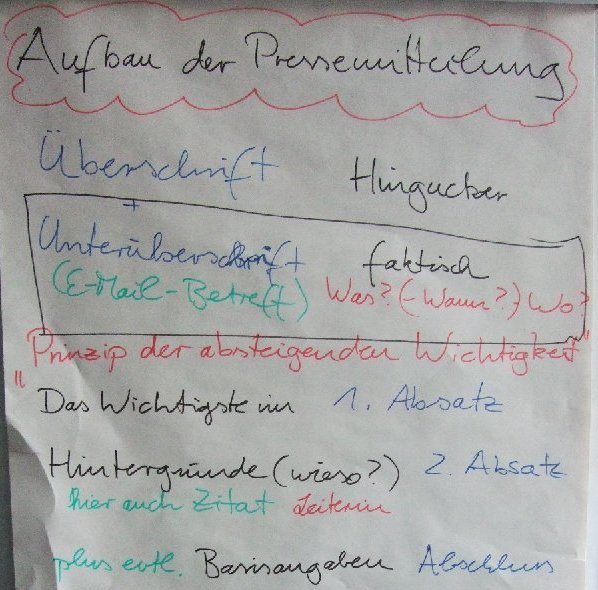 Aufbau der Pressemitteilung
Überschrift Hingucker
+
Unterüberschrift faktisch
(E-Mail-Betreff) Was? (-Wann?-) Wo?
"Prinzip der absteigenden Wichtigkeit"
Das Wichtigste im 1. Absatz
Hintergründe (wieso?) 2. Absatz
hier auch Zitat Leiterin
plus evtl. Basisangaben Abschluss